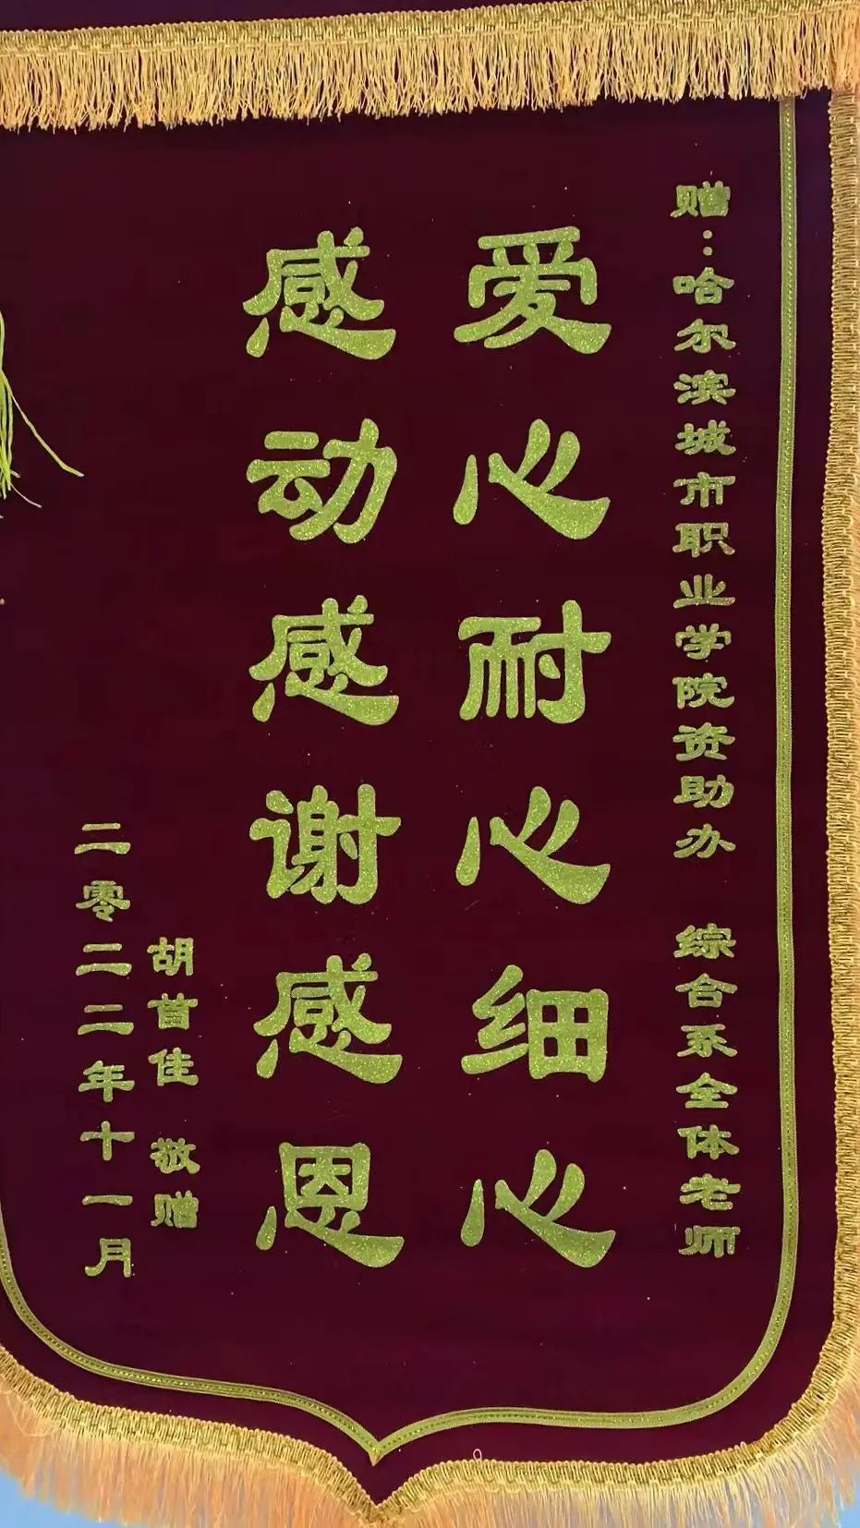 赠：哈尔滨城市职业学院资助办 综合系全体老师
爱心耐心细心
感动感谢感恩
胡首佳 敬赠
二零二二年十一月